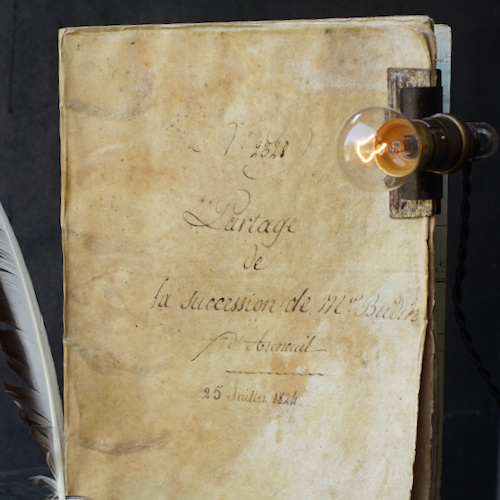 N° 2328
Partage
de
la succession de Mme Budin
d'Auneuil
25 Juillet 1824